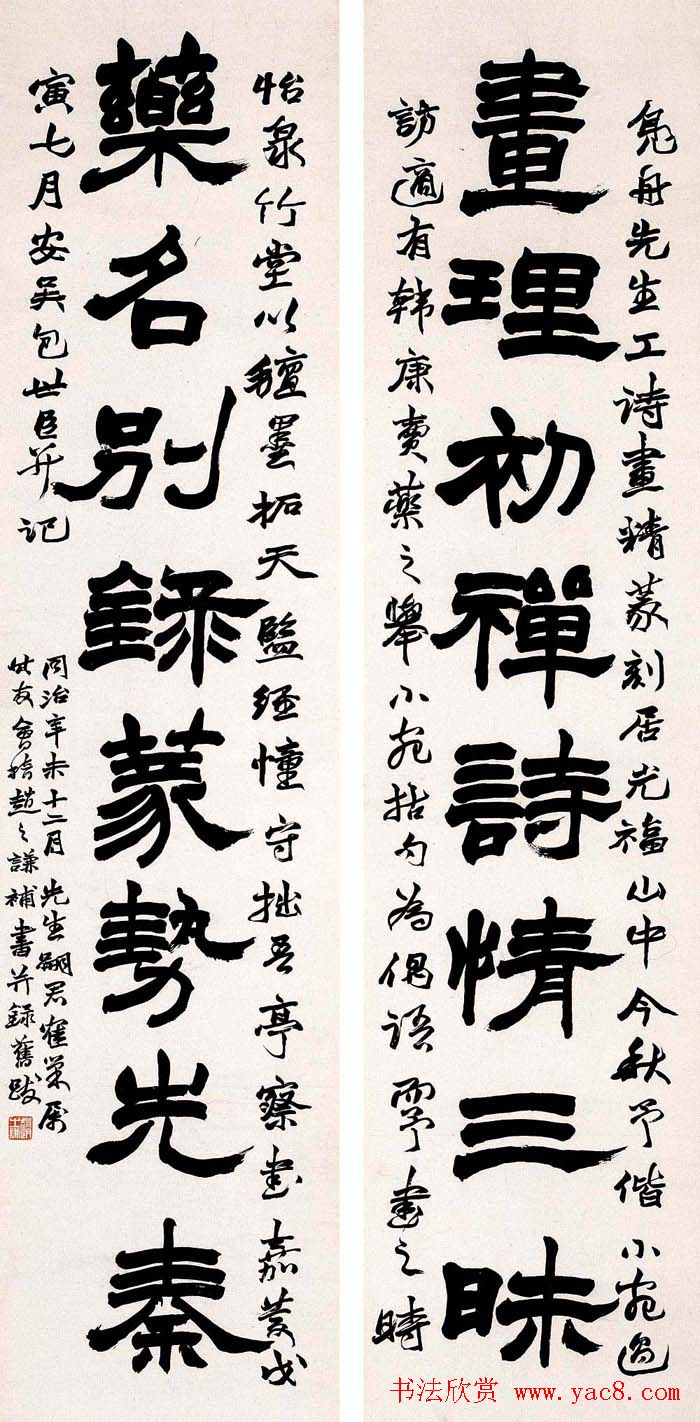 凫舟先生工诗畫精篆刻居光福山中今秋予偕小宛過
畫理初禪詩情三昧
訪適有韩康賣藥之舉小宛拈句為偶語 予畫之時
怡泉竹堂以氊墨拓天監經幢守拙吾亭察書嘉慶戊
藥名別錄篆勢先秦
寅七月安吴包世臣并记
同治辛未十二月 先生嗣君 屬
故友會稽趙之謙補書并録舊跋
书法欣赏 www.yac8.com